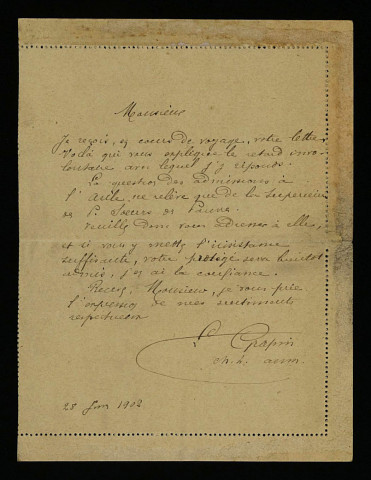 Monsieur
Je reçois, en cours de voyage, votre lettre
Voilà qui vous explique le retard invo-
lontaire avec lequel j'y réponds.
La question des admissions à
l'Asile, ne relève que de la Supérieure
des Stes Soeurs des Pauvres.
Veuillez donc vous adresser à elles,
et si vous y mettez l'insistance
suffisante, votre protégé sera bientôt
admis, j'en ai la confiance.
Recevez, Monsieur, je vous prie
l'expression de mes sentiments
respectueux
28 Juin 1902